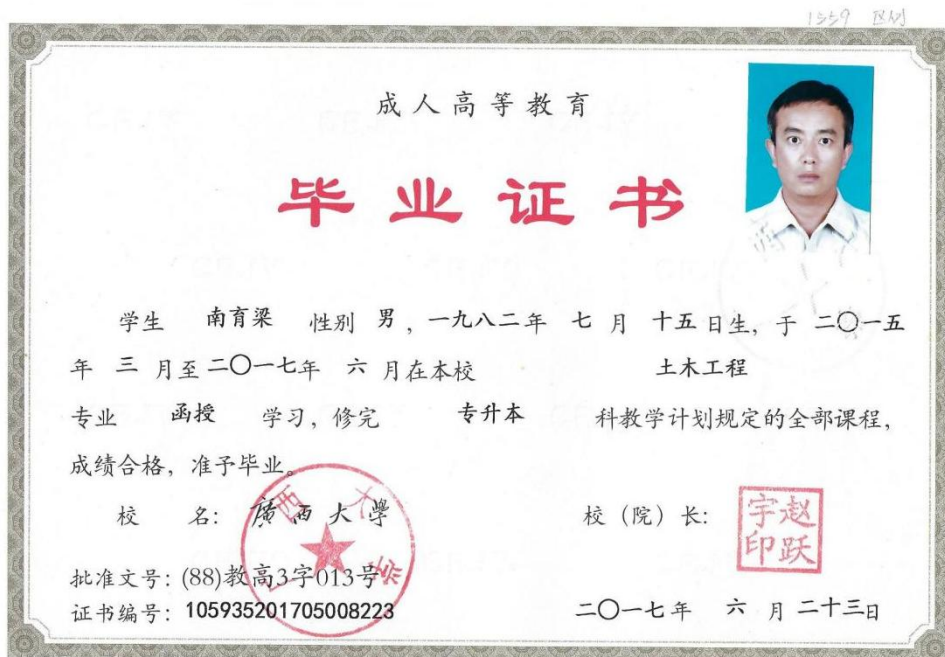 1559 区别
成人高等教育
毕业证书
学生 南育梁 性别 男，一九八二年 七 月 十五日生，于 二〇一五
年 三 月至二〇一七年 六 月在本校 土木工程
专业 函授 学习，修完 专升本 科教学计划规定的全部课程，
成绩合格，准予毕业。
校 名：廣西大學
校（院）长：
赵跃
宇印
批准文号：(88)教高3字013号
证书编号：105935201705008223
二〇一七年 六 月 二十三日